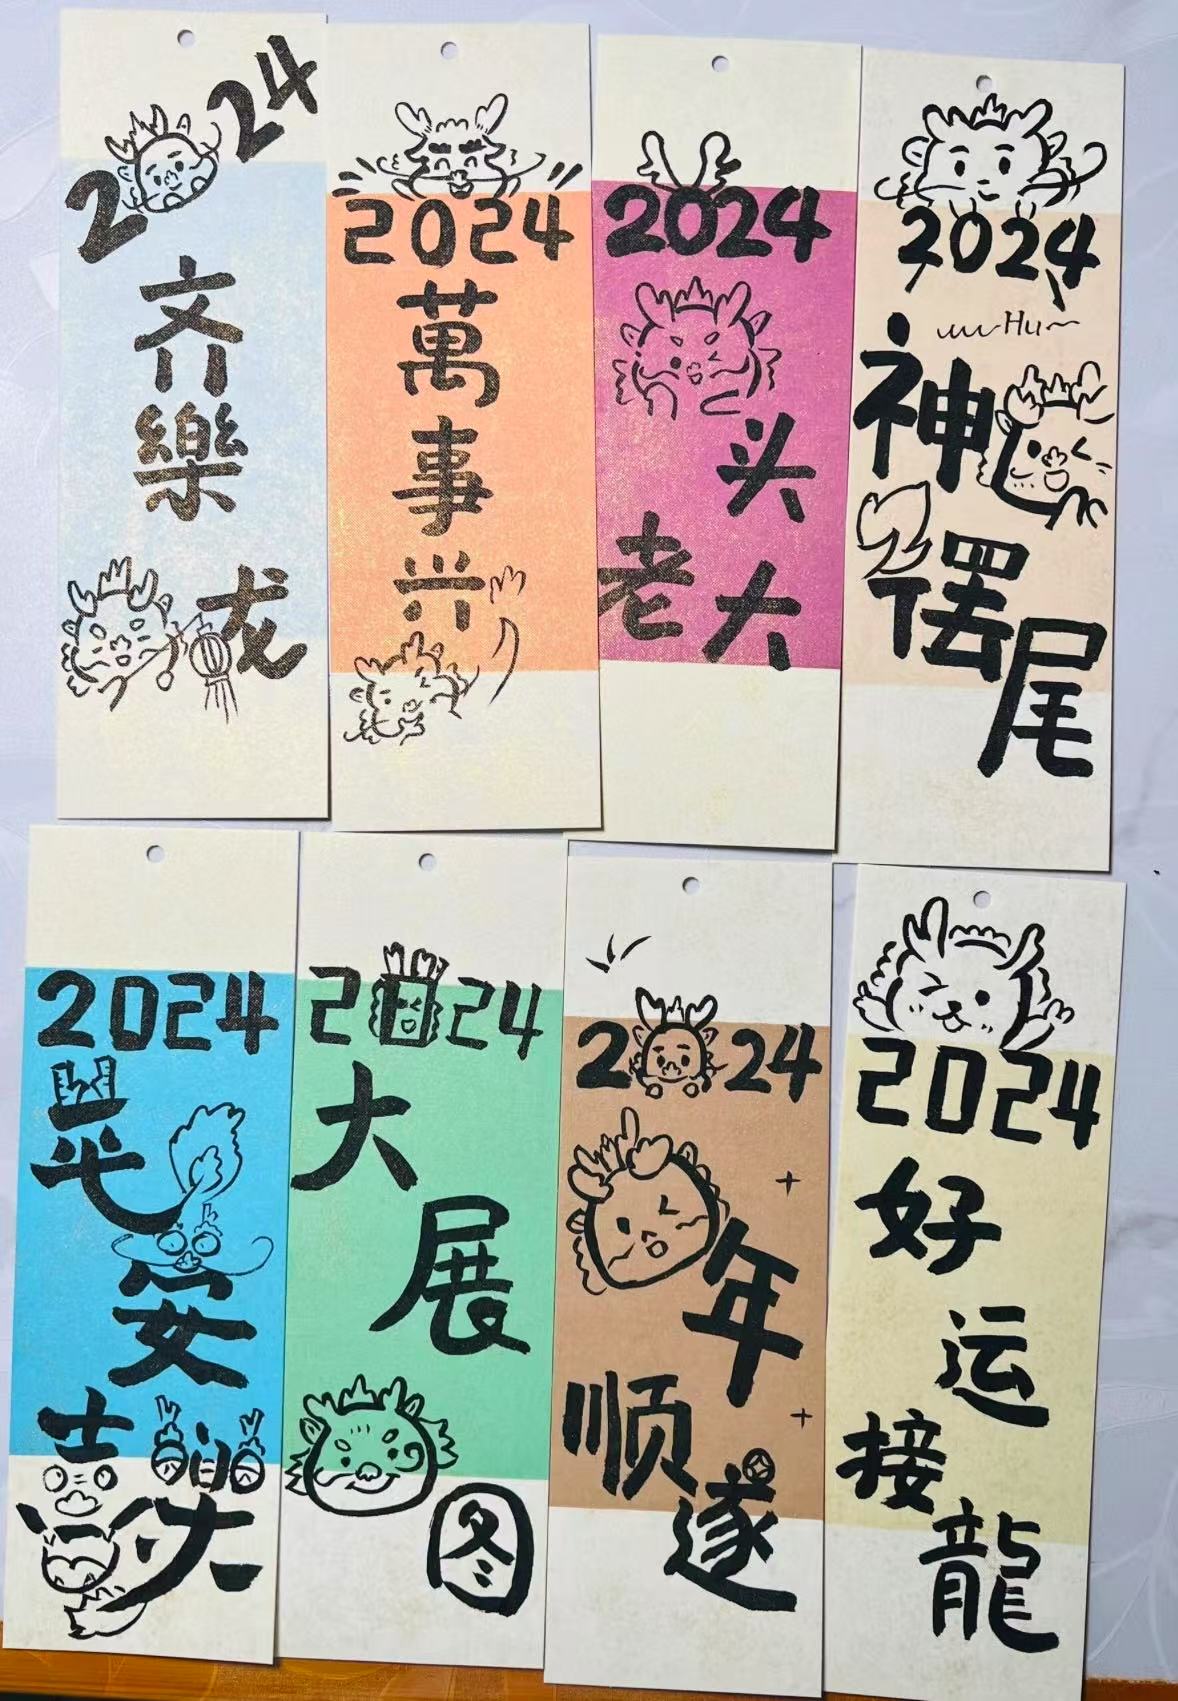 2 24
齐
樂
龙
2024
萬
事
兴
2024
头
老大
2024
Hu
神
摆
尾
2024
平
安
2024
大
展
图
2 24
年
顺
遂
2024
好
运
接
龍